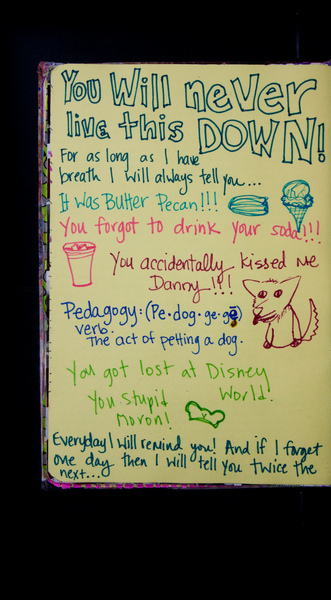 You Will never
live this DOWN!
For as long as I have
breath I will always tell you...
It was Butter Pecan!!!
You forgot to drink your soda!!!
You accidentally kissed me
Danny!!!
Pedagogy: (Pe·dog·ge·gē)
verb.
The act of petting a dog.
You got lost at Disney
World!
You Stupid
Moron!
Everyday I will remind you! And if I forget
one day then I will tell you twice the
next...